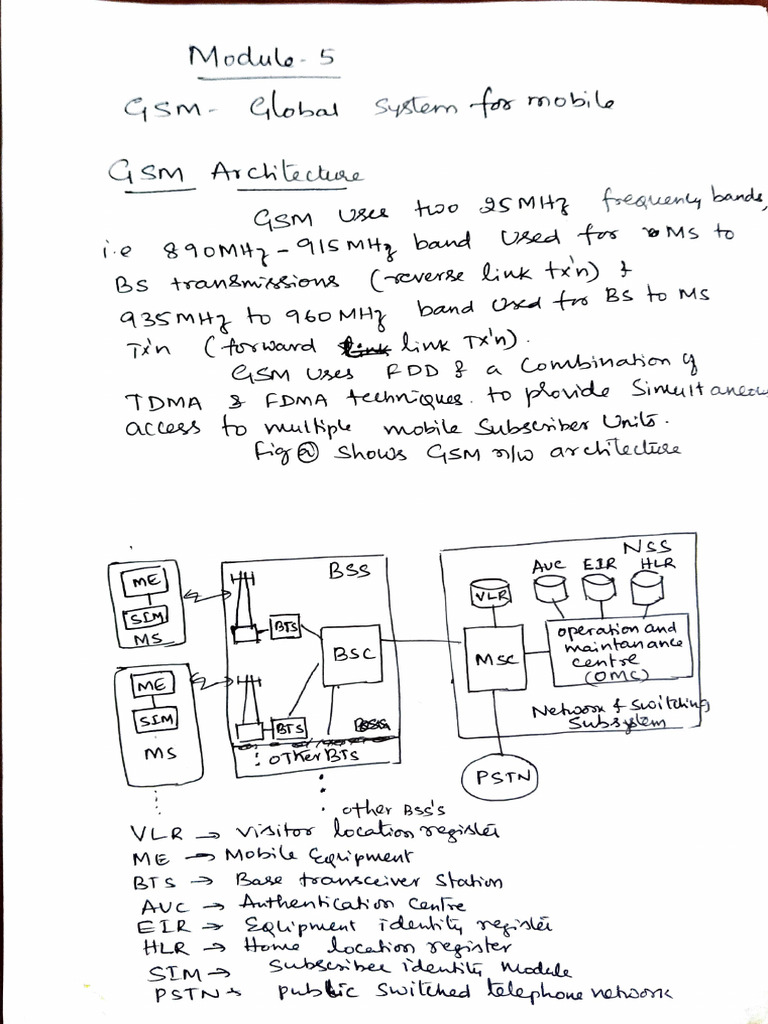 Module-5
GSM- Global System for mobile
GSM Architecture
GSM uses two 25MHz frequency bands,
i.e 890MHz-915MHz band used for MS to
BS transmissions (reverse link tx'n) &
935MHz to 960MHz band used for BS to MS
Tx'n (forward link Tx'n).
GSM uses FDD & a Combination of
TDMA & FDMA techniques. to provide Simultaneou
access to multiple mobile Subscriber Units.
Fig (a) shows GSM n/w architecture
BSS
NSS
AUC EIR HLR
VLR
ME
SIM
MS
BTS
BSC
MSC
operation and
maintanance
centre
(OMC)
ME
SIM
MS
BTS
other BTS
Network & Switching
Subsystem
PSTN
other BSS's
VLR → Visitor location register
ME → Mobile Equipment
BTS → Base transceiver Station
AUC → Authentication Centre
EIR → Equipment identity register
HLR → Home location register
SIM → Subscriber identity Module
PSTN → public switched telephone network